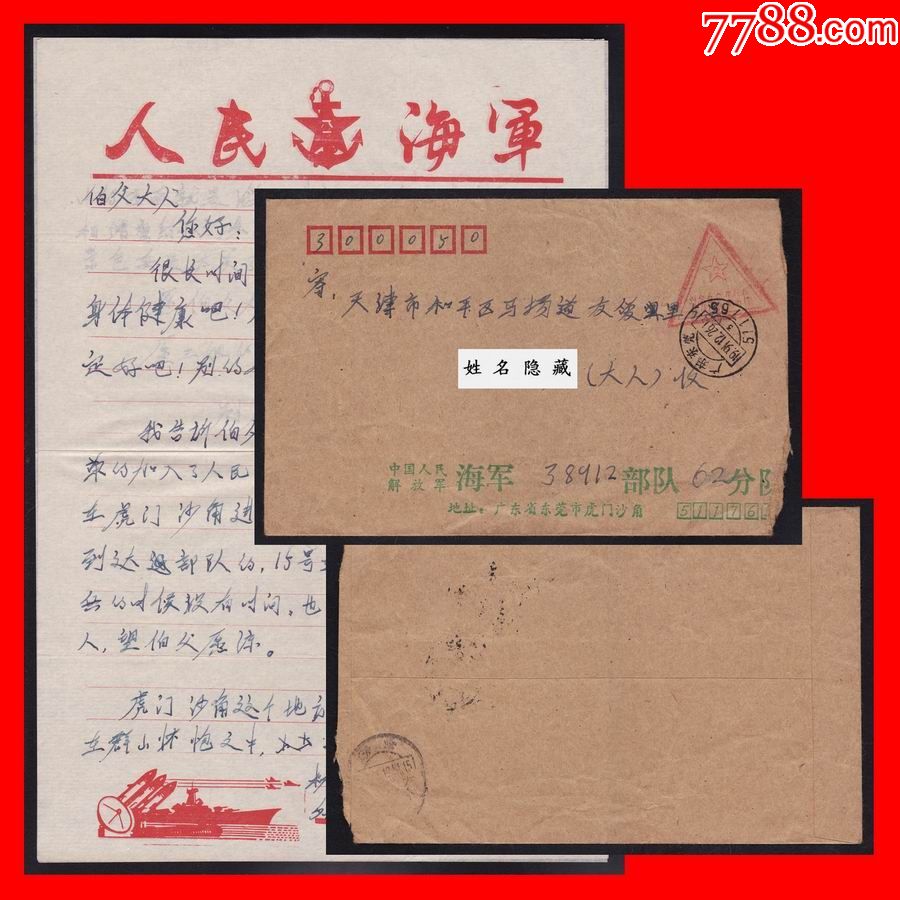 7788.com
人民海軍
伯父大人
您好:
很长时间
身体健康吧!
定好吧!别的
我告诉伯父
加入了人民
在虎门沙角进
到达部队的,15号
的时候没有时间,也
人,望伯父愿谅。
虎门沙角这个地方
在群山怀抱之中,
300050
寄:天津市和平区马场道友爱里
姓名隐藏(大人)收
中国人民
解放军 海军38912部队62分队
地址:广东省东莞市虎门沙角 511761